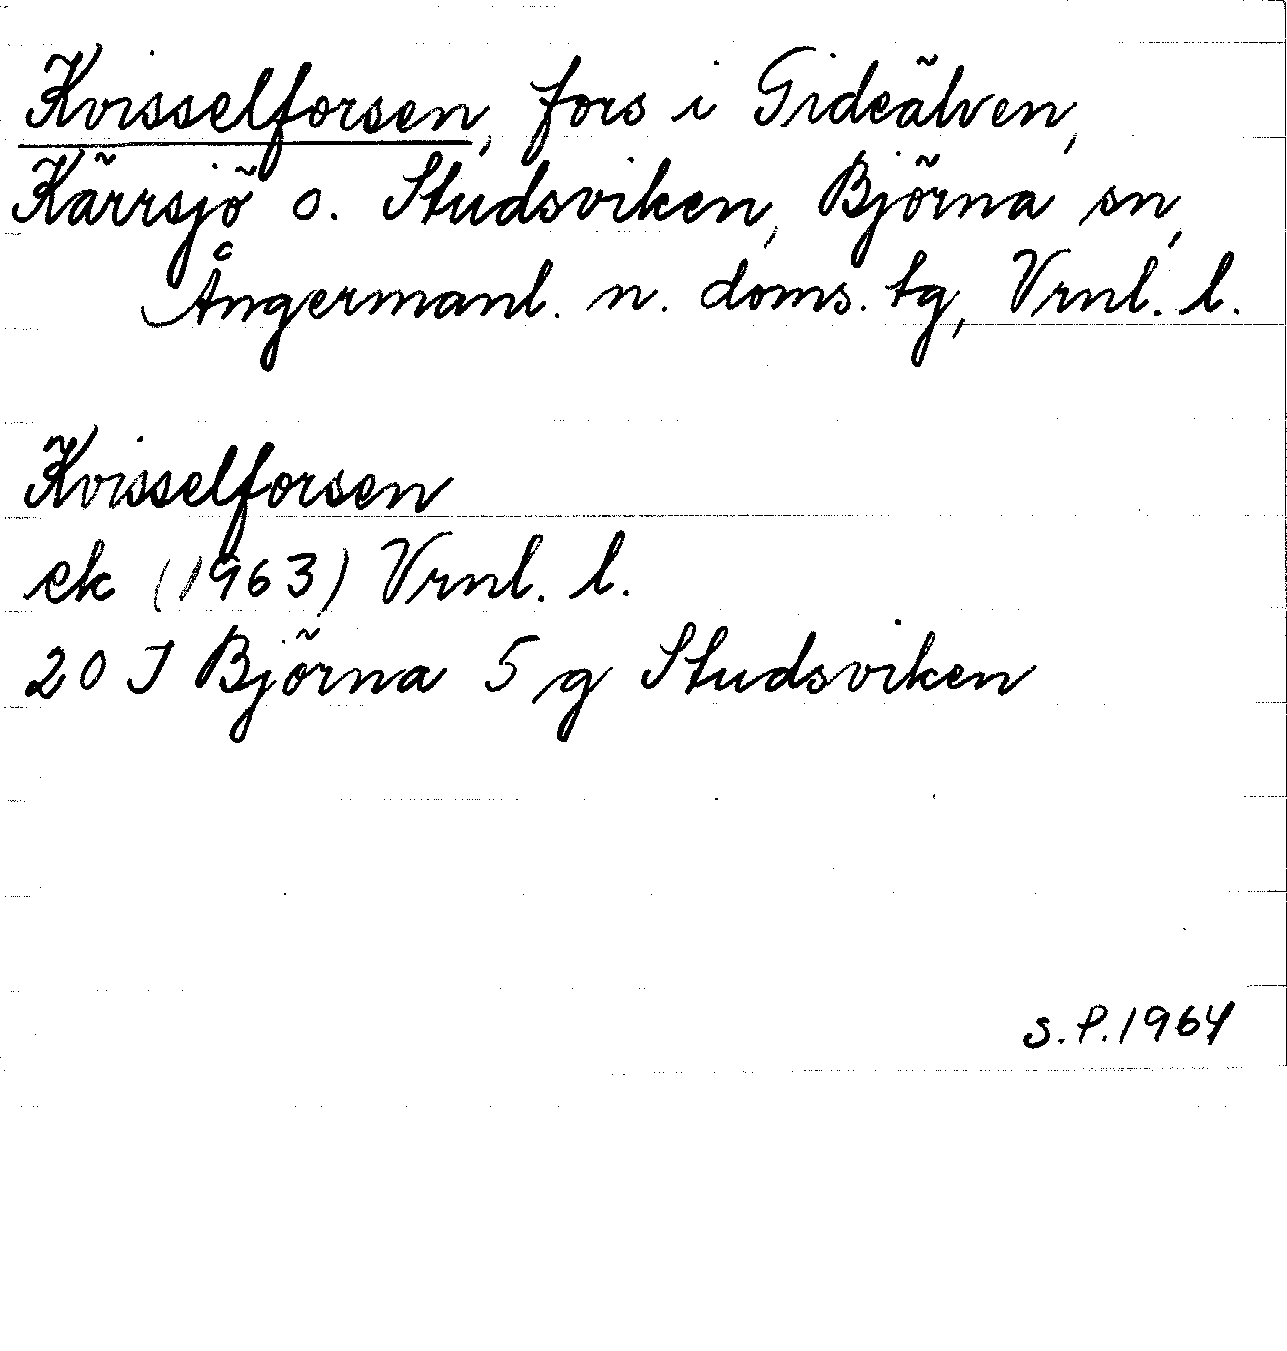 Kvisselforsen, fors i Gideälven,
Kärrsjö o. Studsviken, Björna sn,
Ångermanl. n. doms. tg, Vrnl. l.
Kvisselforsen
ek (1963) Vrnl. l.
20 J Björna 5 g Studsviken
S.P.1964